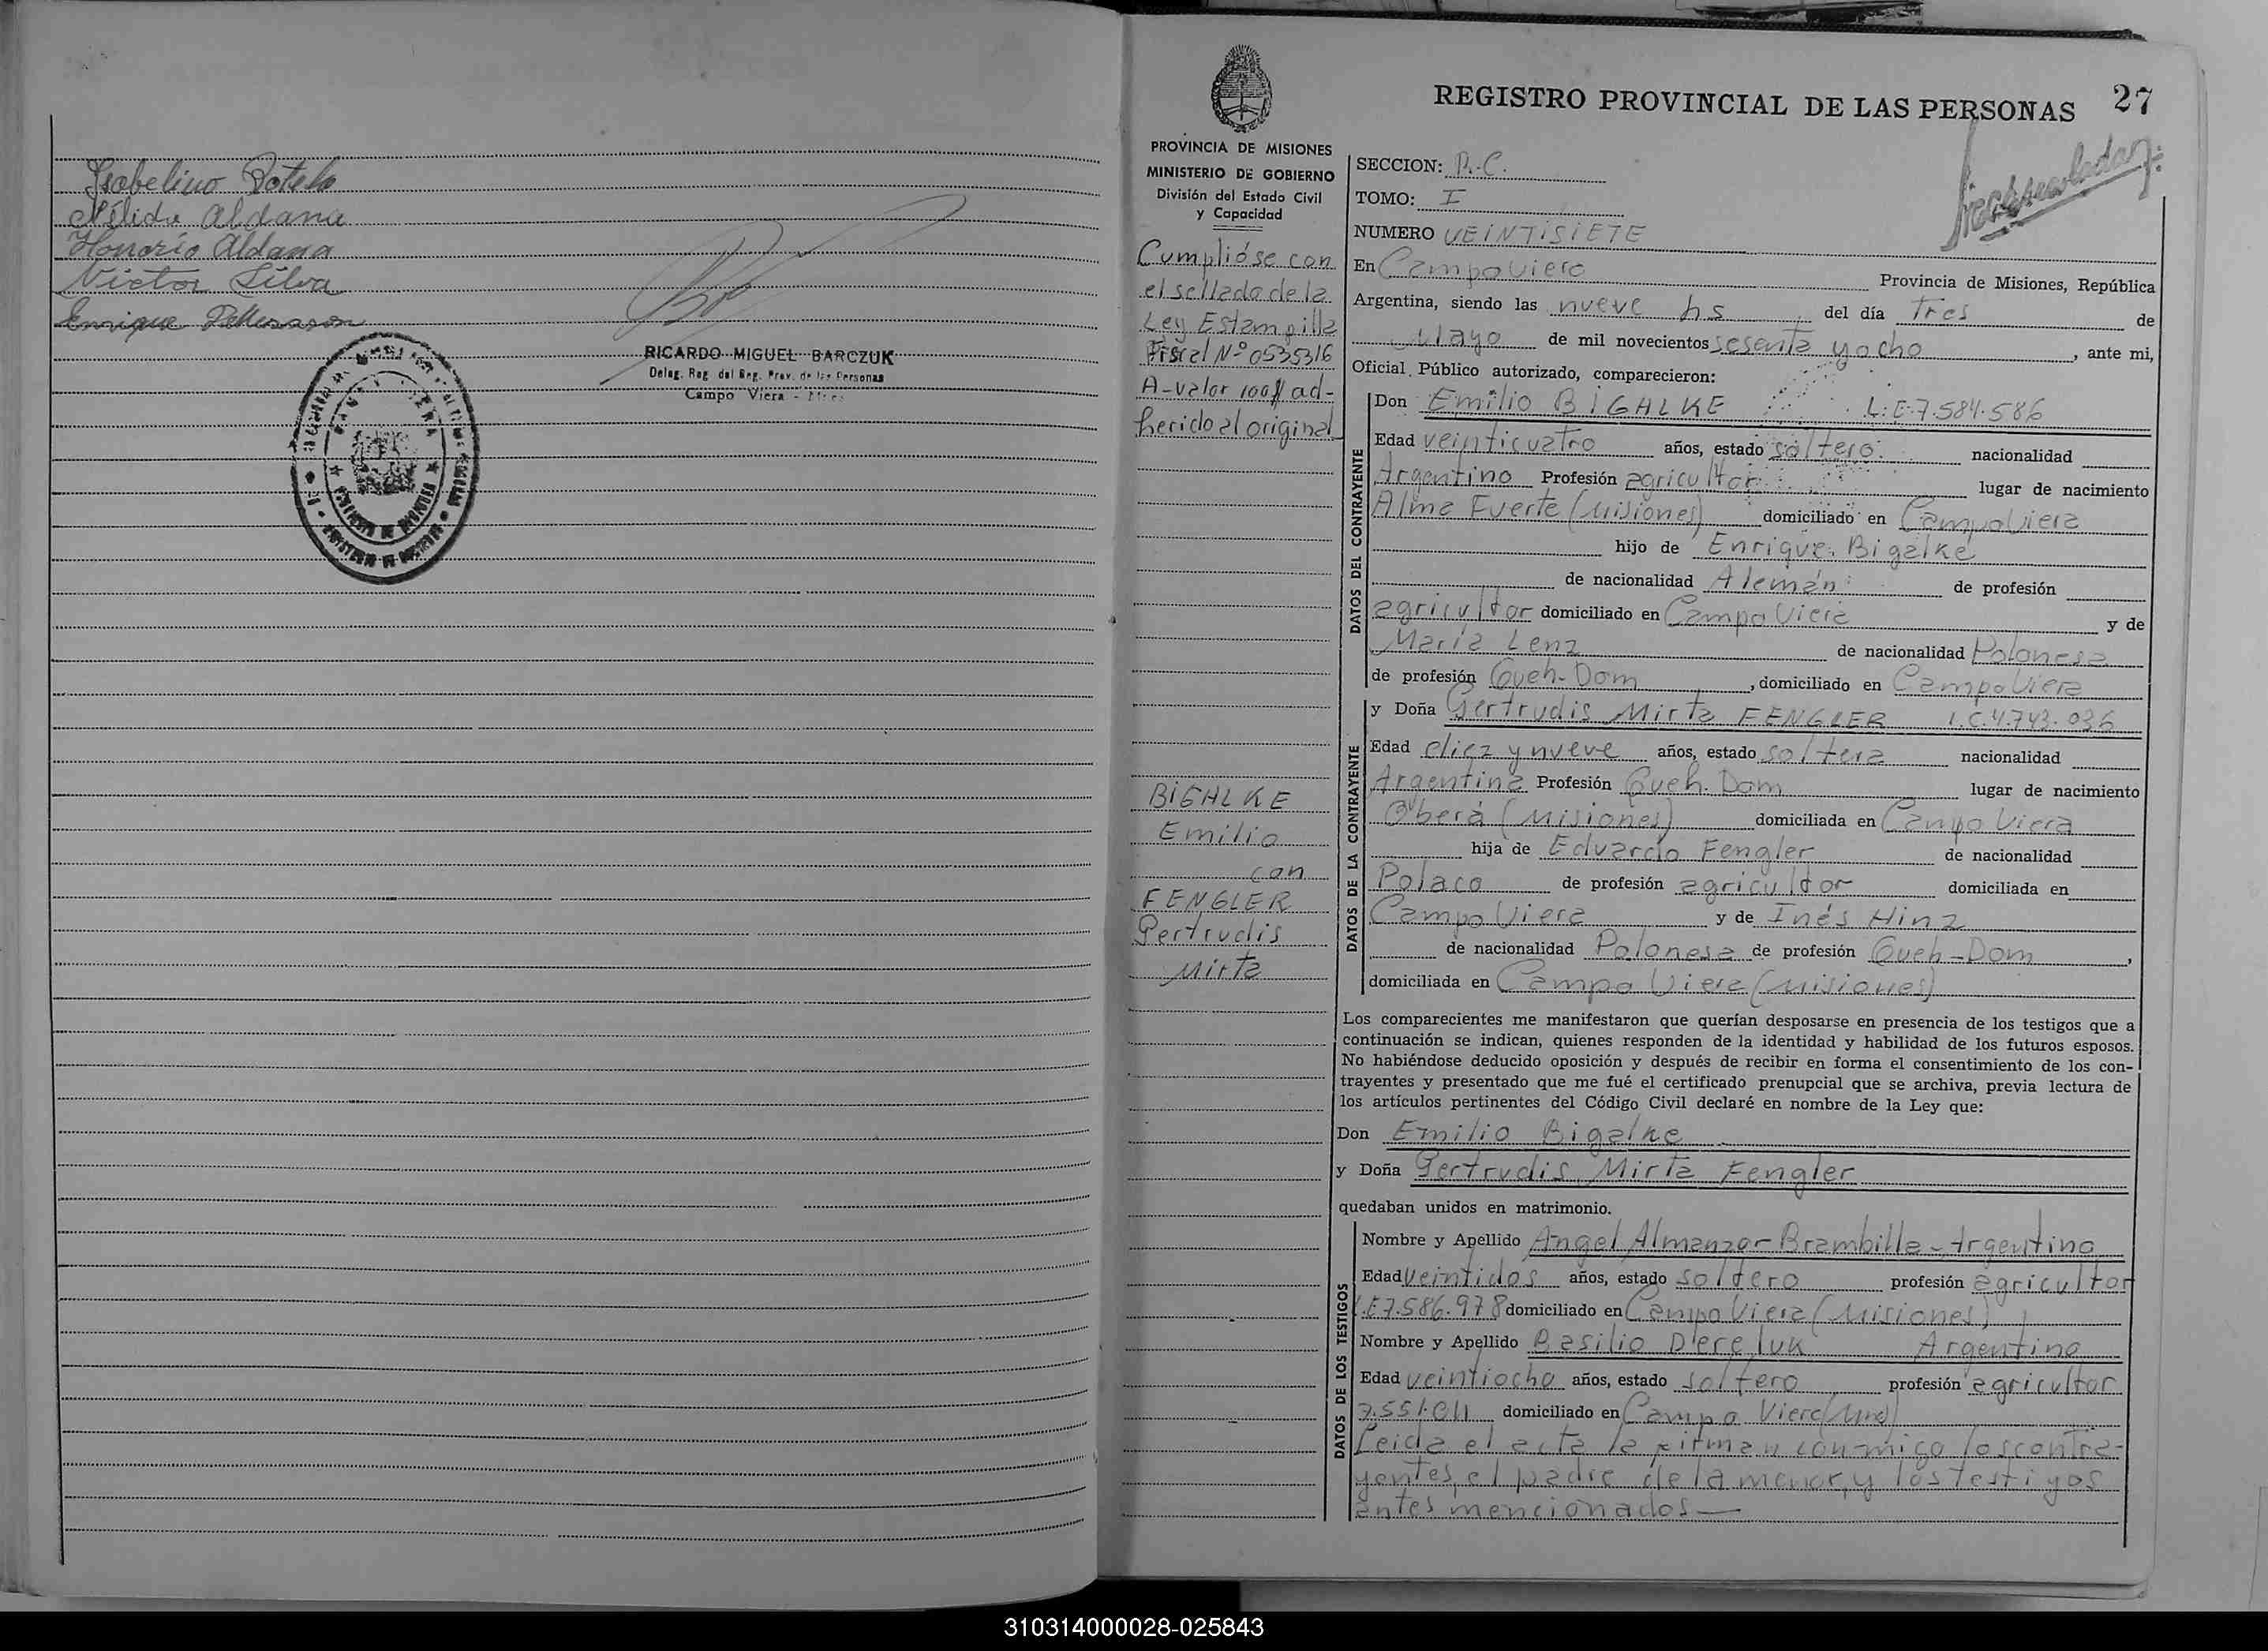 Isabelino Sotelo
Nélida Aldana
Honorio Aldana
Victor Silva
Enrique
RICARDO MIGUEL BARCZUK
Deleg. Reg. del Reg. Prov. de las Personas
Campo Viera -
27
REGISTRO PROVINCIAL DE LAS PERSONAS
PROVINCIA DE MISIONES
MINISTERIO DE GOBIERNO
División del Estado Civil
y Capacidad
Cumplióse con
el sellado de la
Ley Estampilla
Fiscal Nº 0535316
A-valor 100$ ad-
herido al original
BIGALKE
Emilio
con
FENGLER
Gertrudis
Mirta
SECCION: R.C.
TOMO: I
NUMERO VEINTISIETE
En Campo Viera Provincia de Misiones, República
Argentina, siendo las nueve hs del día Tres de
Mayo de mil novecientos sesenta y ocho, ante mi,
Oficial Público autorizado, comparecieron:
DATOS DEL CONTRAYENTE
Don Emilio BIGALKE L:E.7.584.586
Edad veinticuatro años, estado soltero. nacionalidad
Argentino Profesión agricultor lugar de nacimiento
Alma Fuerte (Misiones) domiciliado en Campo Viera
hijo de Enrique Bigalke
de nacionalidad Alemán de profesión
agricultor domiciliado en Campo Viera y de
María Lenz de nacionalidad Polonesa
de profesión Queh-Dom, domiciliado en Campo Viera
DATOS DE LA CONTRAYENTE
y Doña Gertrudis Mirta FENGLER L.C.4.743.036
Edad diez y nueve años, estado soltera nacionalidad
Argentina Profesión Queh. Dom lugar de nacimiento
Oberá (Misiones) domiciliada en Campo Viera
hija de Eduardo Fengler de nacionalidad
Polaco de profesión agricultor domiciliada en
Campo Viera y de Inés Hinz
de nacionalidad Polonesa de profesión Queh-Dom,
domiciliada en Campo Viera (Misiones)
Los comparecientes me manifestaron que querían desposarse en presencia de los testigos que a
continuación se indican, quienes responden de la identidad y habilidad de los futuros esposos.
No habiéndose deducido oposición y después de recibir en forma el consentimiento de los con-
trayentes y presentado que me fué el certificado prenupcial que se archiva, previa lectura de
los artículos pertinentes del Código Civil declaré en nombre de la Ley que:
Don Emilio Bigalke
y Doña Gertrudis Mirta Fengler
quedaban unidos en matrimonio.
DATOS DE LOS TESTIGOS
Nombre y Apellido Angel Almanzor Brambilla - Argentino
Edad veintidos años, estado soltero profesión agricultor
L.E 7.586.978 domiciliado en Campo Viera (Misiones)
Nombre y Apellido Basilio Dereluk Argentino
Edad veintiocho años, estado soltero profesión agricultor
7.551.011 domiciliado en Campo Viera (Mnes)
Leida el acta la firman con-migo los contra-
yentes, el padre de la menor, y los testigos
antes mencionados —
310314000028-025843